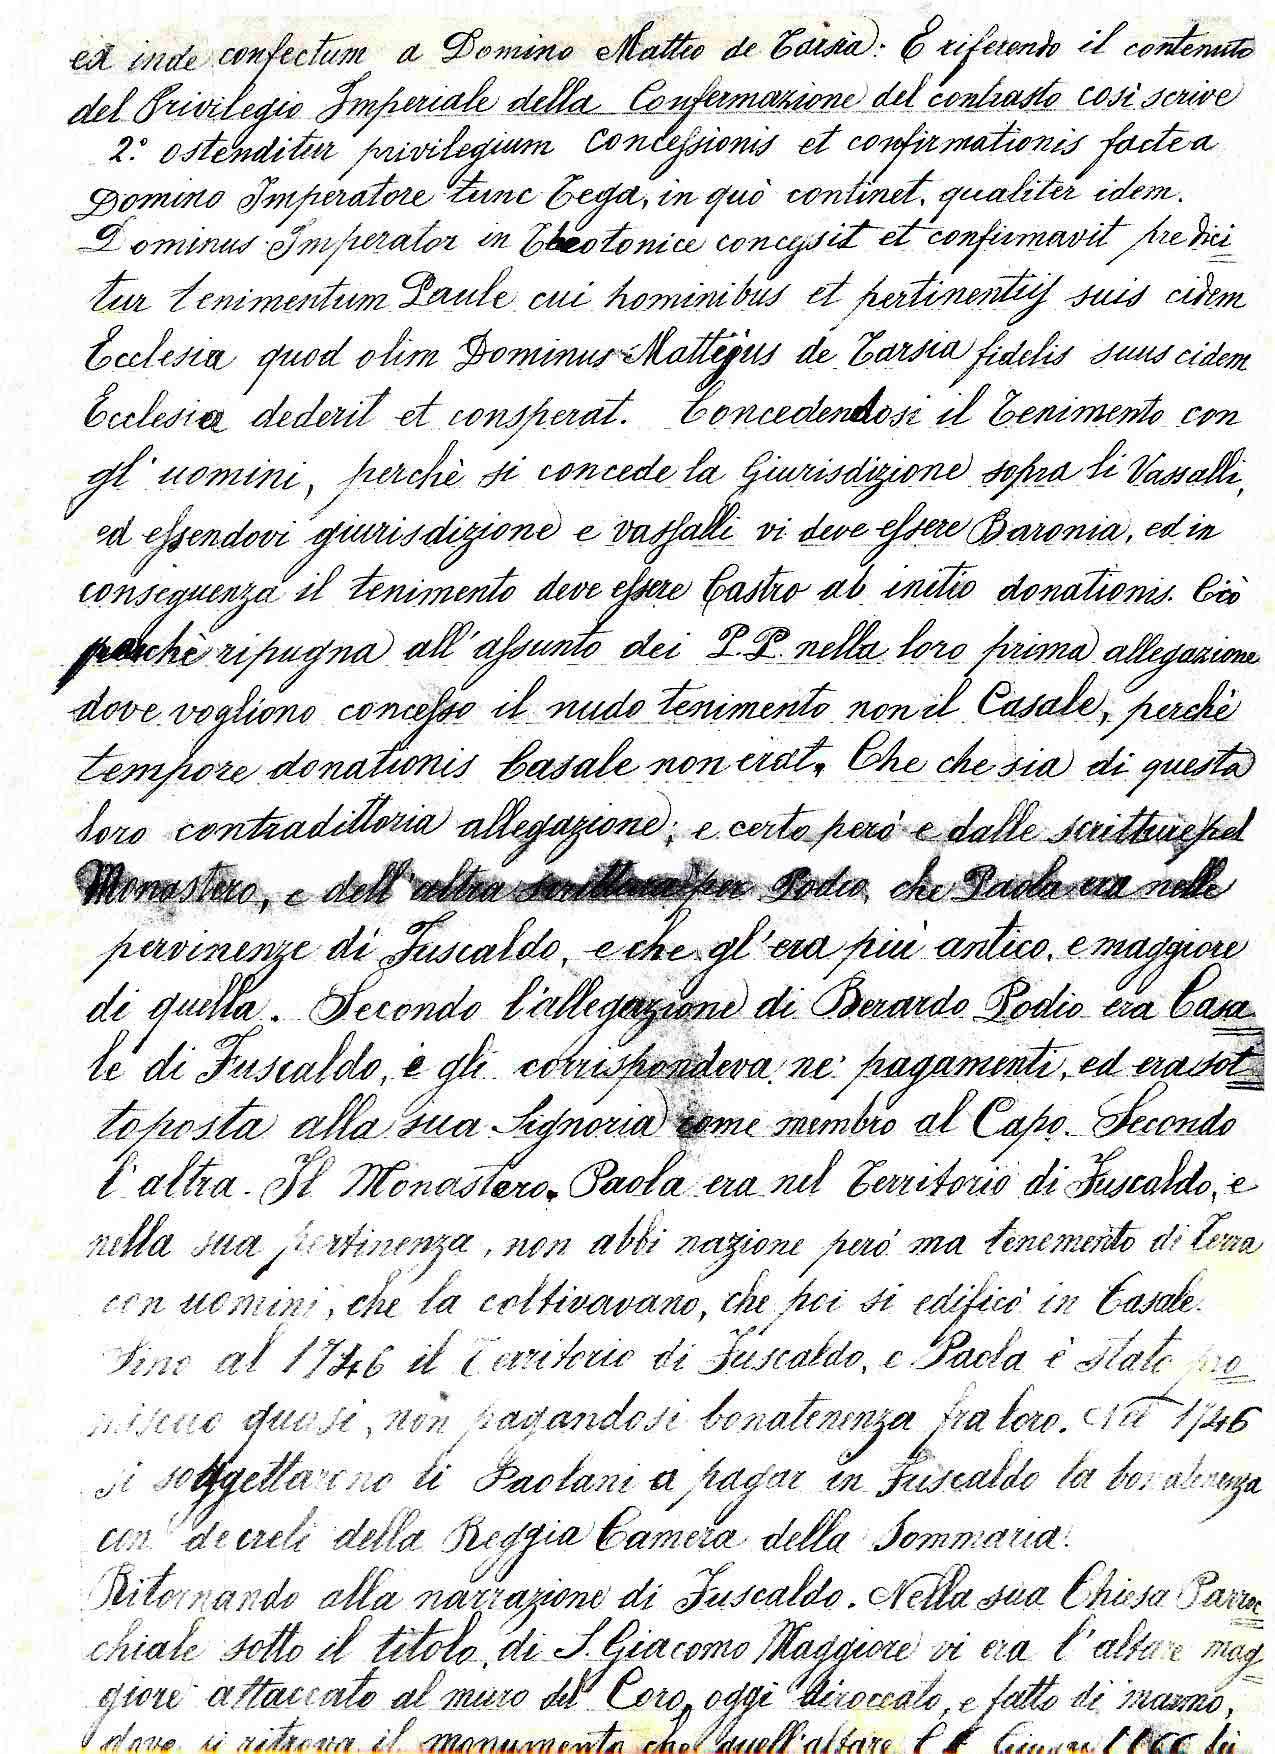 ex inde confectum a Domino Matteo de Tarsia: E riferendo il contenuto
del Privilegio Imperiale della Confermazione del contrasto così scrive
2.° ostenditur privilegium Concessionis et confirmationis facte a
Domino Imperatore tunc Tega, in quò continet, qualiter idem.
Dominus Imperator in Theotonice concessit et confirmavit predici
tur tenimentum Paule cui hominibus et pertinentiis suis cidem
Ecclesia quod olim Dominus Matteius de Tarsia fidelis suus cidem
Ecclesia dederit et consperat. Concedendosi il Tenimento con
gl'uomini, perchè si concede la Giurisdizione sopra li Vassalli,
ed essendovi giurisdizione e vassalli vi deve essere Baronia, ed in
conseguenza il tenimento deve essere Castro ab initio donationis. Ciò
perchè ripugna all'assunto dei P.P. nella loro prima allegazione
dove vogliono concesso il nudo tenimento non il Casale, perchè
tempore donationis Casale non erat. Che che sia di questa
loro contradittoria allegazione; e certo però e dalle scritture pel
Monastero, e dell'altra per Podio, che Paola era nelle
pervinenze di Fuscaldo, e che gl'era più antico, e maggiore
di quella. Secondo l'allegazione di Berardo Podio era Casa
le di Fuscaldo, e gli corrispondeva ne' pagamenti, ed era sot
toposta alla sua Signoria come membro al Capo. Secondo
l'altra. Il Monastero. Paola era nel Territorio di Fuscaldo, e
nella sua pertinenza, non abbi nazione però ma tenemento di Terra
con uomini, che la coltivavano, che poi si edificò in Casale.
Fino al 1746 il Territorio di Fuscaldo, e Paola è stato pro
miscuo quasi, non pagandosi bonatenenza fra loro. Nel 1746
si soggettarono li Paolani a pagar in Fuscaldo la bonatenenza
con decreti della Reggia Camera della Sommaria.
Ritornando alla narrazione di Fuscaldo. Nella sua Chiesa Parroc
chiale sotto il titolo, di S. Giacomo Maggiore vi era l'altare mag
giore attaccato al muro del Coro, oggi diroccato, e fatto di marmo,
dove si ritrova il monumento che quell'altare